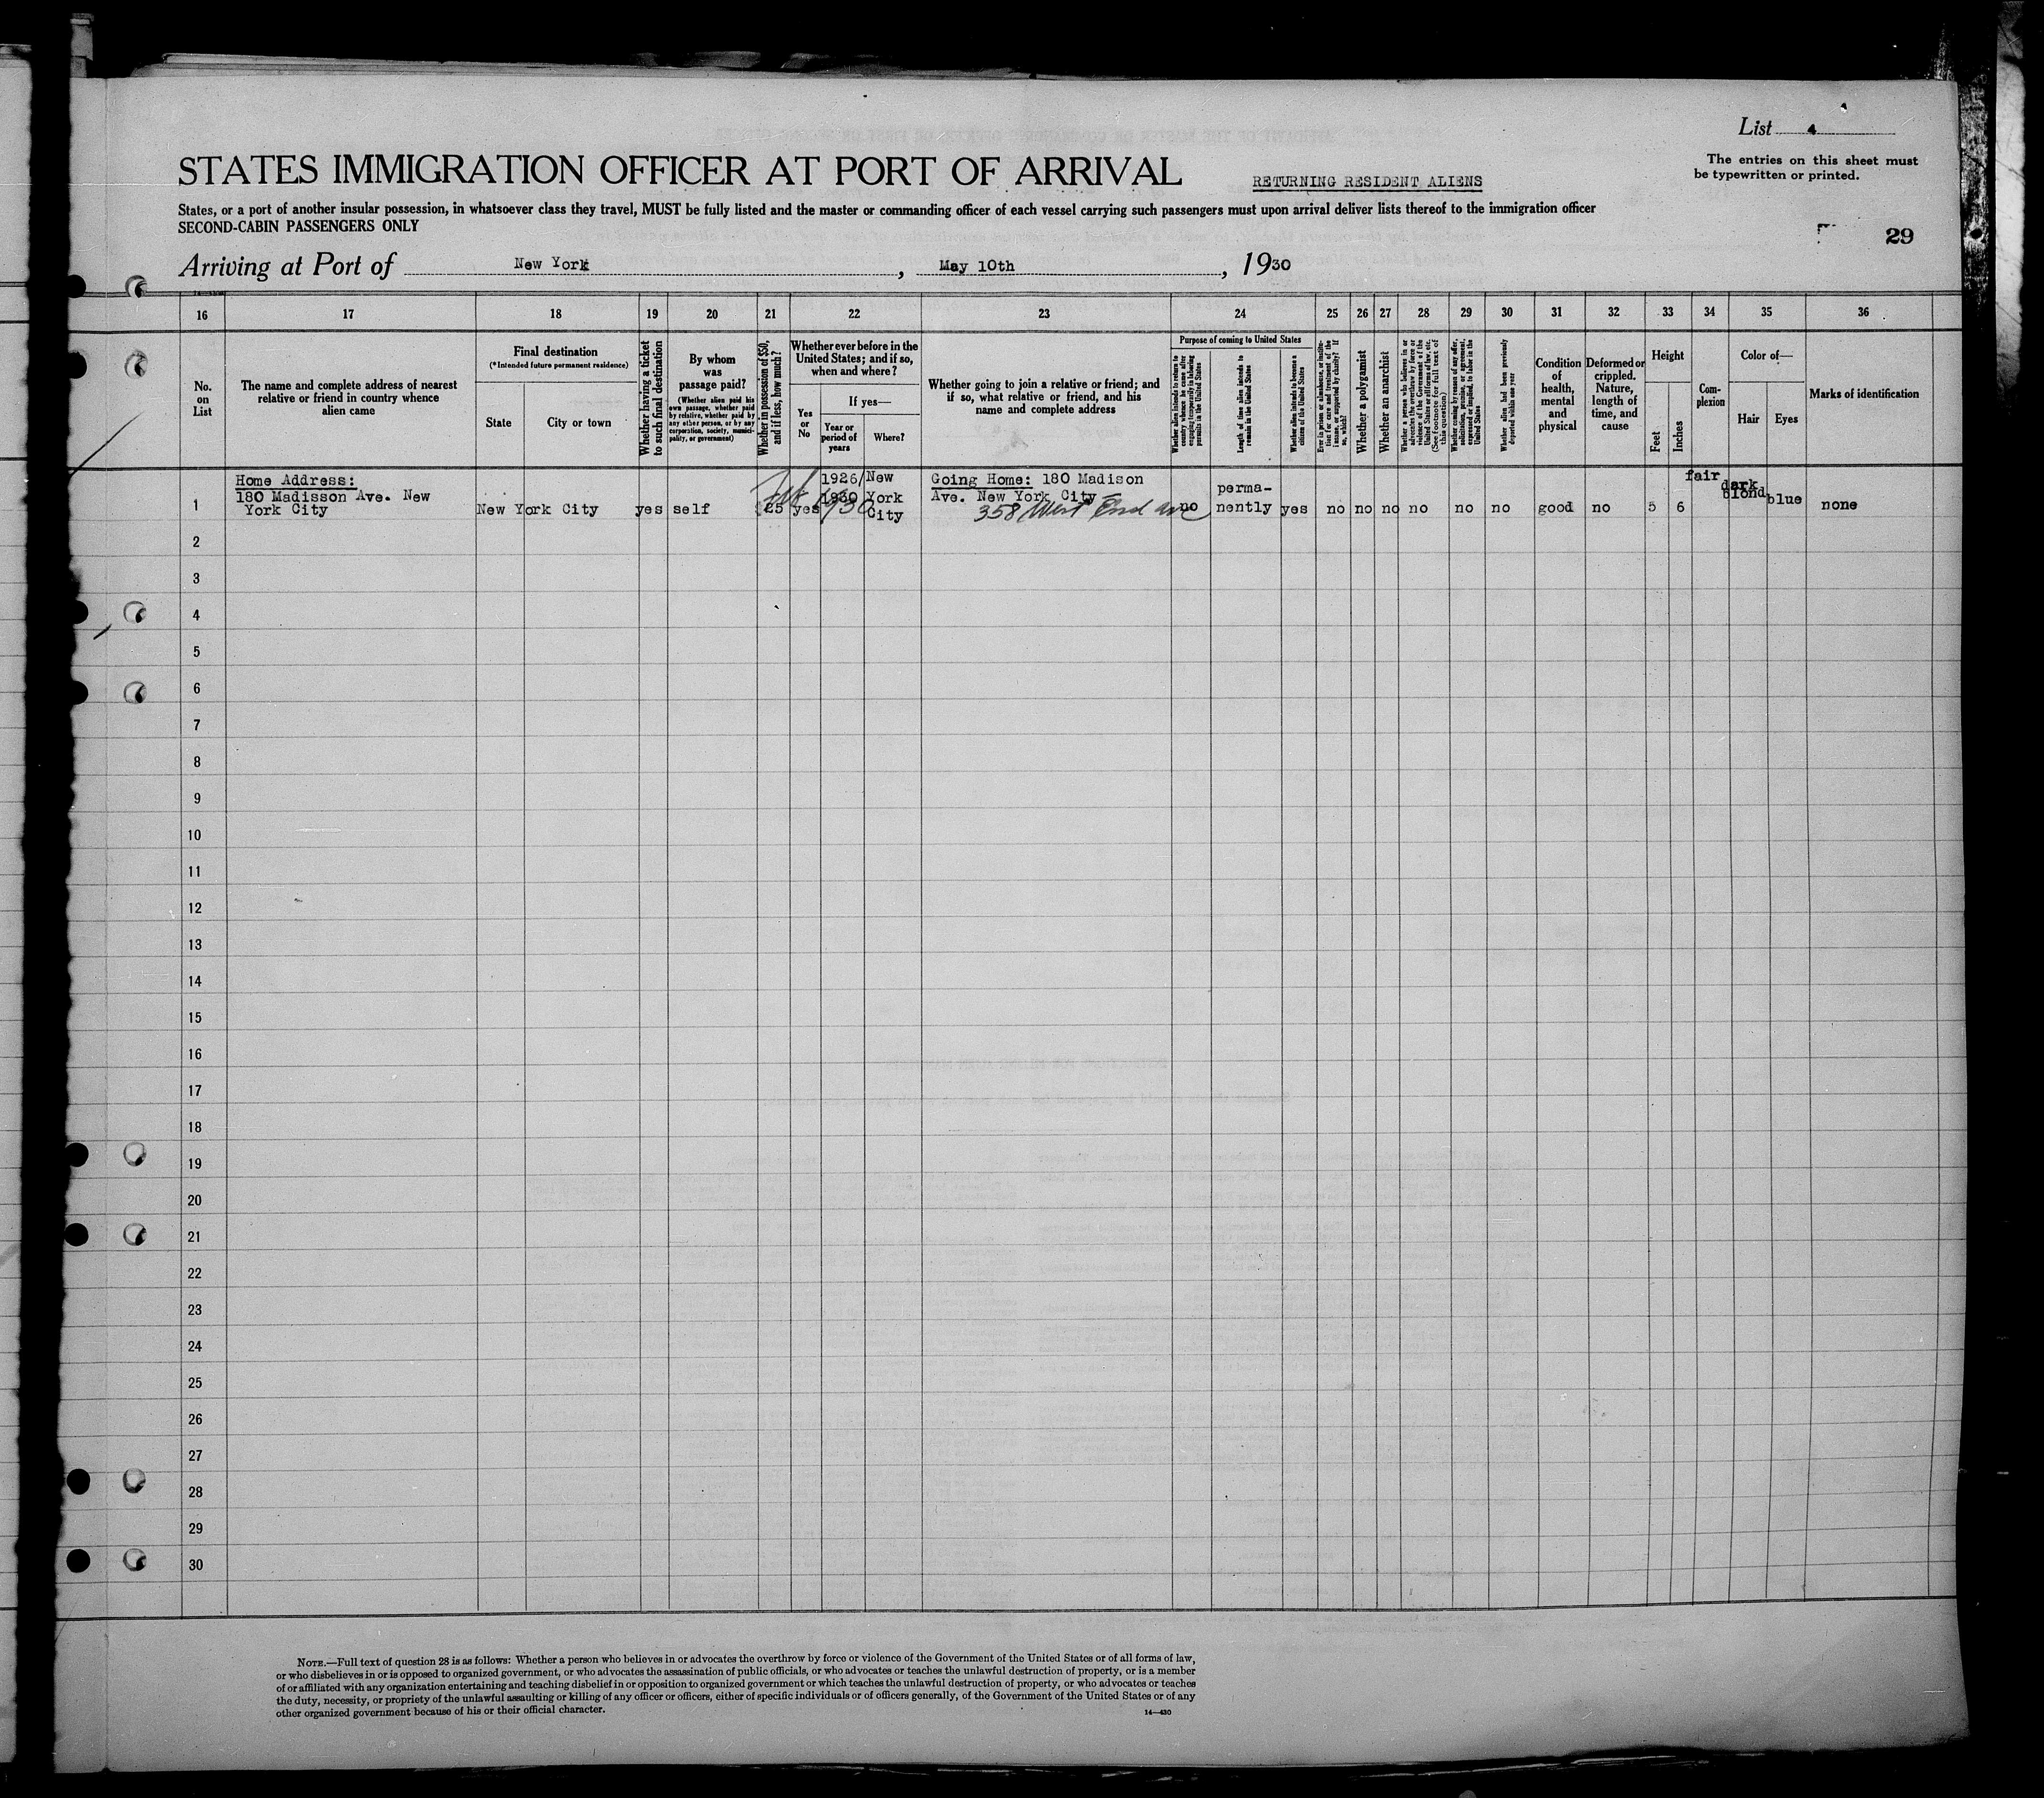 List 4
The entries on this sheet must
be typewritten or printed.
STATES IMMIGRATION OFFICER AT PORT OF ARRIVAL
RETURNING RESIDENT ALIENS
States, or a port of another insular possession, in whatsoever class they travel, MUST be fully listed and the master or commanding officer of each vessel carrying such passengers must upon arrival deliver lists thereof to the immigration officer
SECOND-CABIN PASSENGERS ONLY
29
Arriving at Port of New York, May 10th, 1930
16 17 18 19 20 21 22 23 24 25 26 27 28 29 30 31 32 33 34 35 36
No.
on
List
The name and complete address of nearest
relative or friend in country whence
alien came
Final destination
(*Intended future permanent residence)
State
City or town
Whether having a ticket
to such final destination
By whom
was
passage paid?
(Whether alien paid his
own passage, whether paid
by relative, whether paid by
any other person, or by any
corporation, society, munici-
pality, or government)
Whether in possession of $50,
and if less, how much?
Whether ever before in the
United States; and if so,
when and where?
Yes
or
No
If yes—
Year or
period of
years
Where?
Whether going to join a relative or friend; and
if so, what relative or friend, and his
name and complete address
Purpose of coming to United States
Whether alien intends to return to
country whence he came after
engaging temporarily in laboring
pursuits in the United States
Length of time alien intends to
remain in the United States
Whether alien intends to become a
citizen of the United States
Ever in prison or almshouse, or institu-
tion for care and treatment of the
insane, or supported by charity? If
so, which?
Whether a polygamist
Whether an anarchist
Whether a person who believes in or
advocates the overthrow by force or
violence of the Government of the
United States or all forms of law, etc.
(See footnote for full text of
this question)
Whether coming by reason of any offer,
solicitation, promise, or agreement,
expressed or implied, to labor in the
United States
Whether alien had been previously
deported within one year
Condition
of
health,
mental
and
physical
Deformed or
crippled.
Nature,
length of
time, and
cause
Height
Feet
Inches
Com-
plexion
Color of—
Hair
Eyes
Marks of identification
Home Address:
180 Madisson Ave. New
York City
1 New York City yes self 25 yes
1926/
1930
1930
New
York
City
Going Home: 180 Madison
Ave. New York City
358 West End ave
no
perma-
nently
yes no no no no no no good no 5 6
fair
dark
blond
blue none
2
3
4
5
6
7
8
9
10
11
12
13
14
15
16
17
18
19
20
21
22
23
24
25
26
27
28
29
30
NOTE.—Full text of question 28 is as follows: Whether a person who believes in or advocates the overthrow by force or violence of the Government of the United States or of all forms of law,
or who disbelieves in or is opposed to organized government, or who advocates the assassination of public officials, or who advocates or teaches the unlawful destruction of property, or is a member
of or affiliated with any organization entertaining and teaching disbelief in or opposition to organized government or which teaches the unlawful destruction of property, or who advocates or teaches
the duty, necessity, or propriety of the unlawful assaulting or killing of any officer or officers, either of specific individuals or of officers generally, of the Government of the United States or of any
other organized government because of his or their official character.
14—430